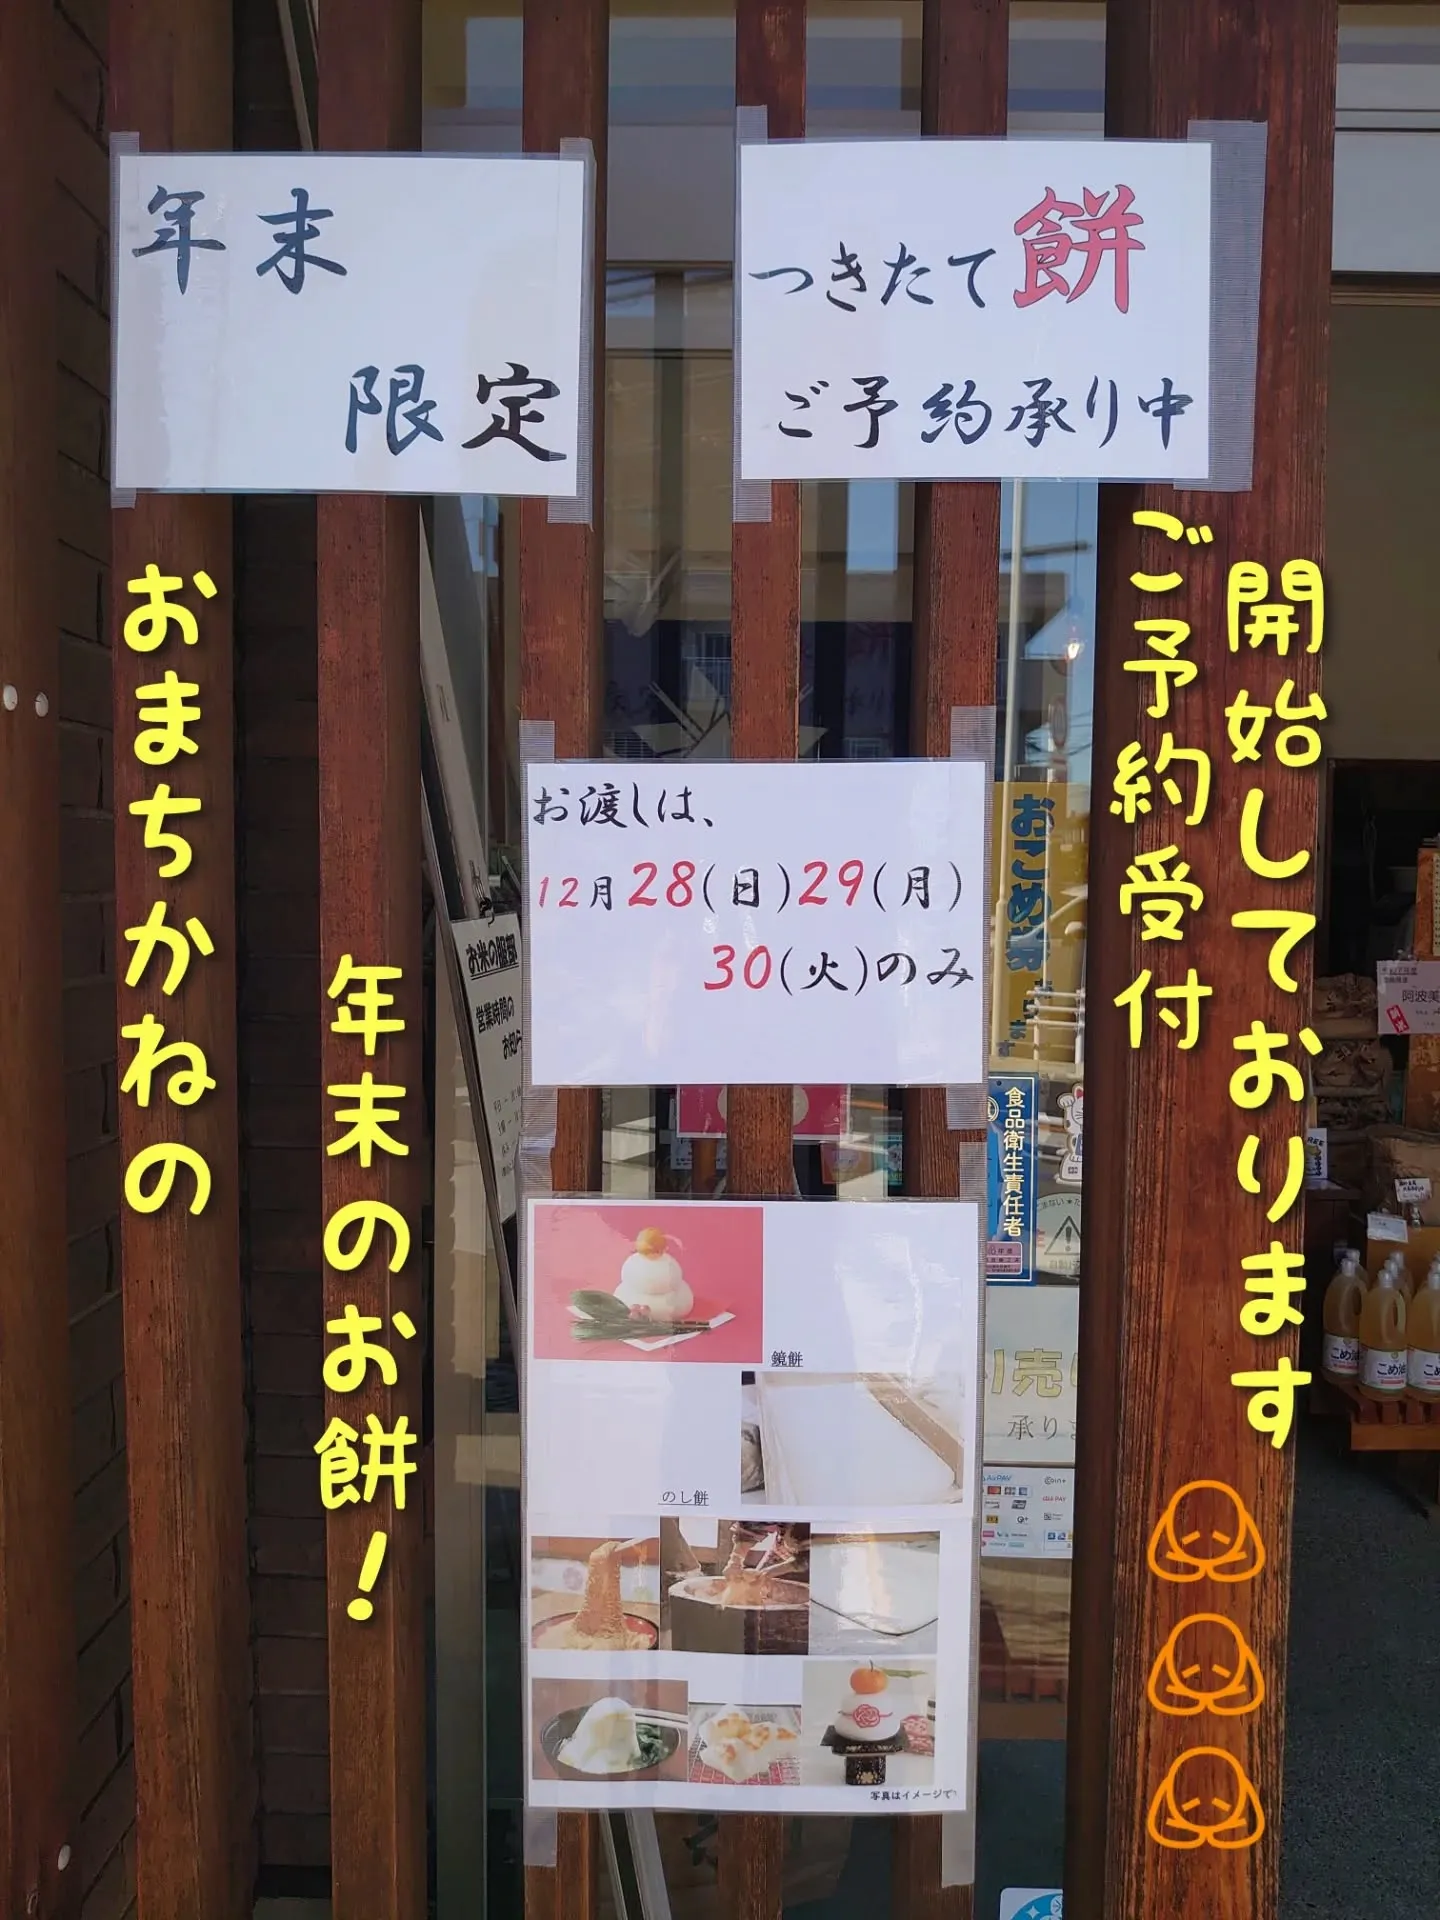 年末
限定
つきたて餅
ご予約承り中
おまちかねの
年末のお餅!
ご予約受付
開始しております
お渡しは、
12月28(日)29(月)
30(火)のみ
鏡餅
のし餅
写真はイメージで
お米の服部
営業時間の
お知ら
おこめ券
ます
食品衛生責任者
小売
承りま
AirPAY
Coin+
阿波美
こめ油
こめ